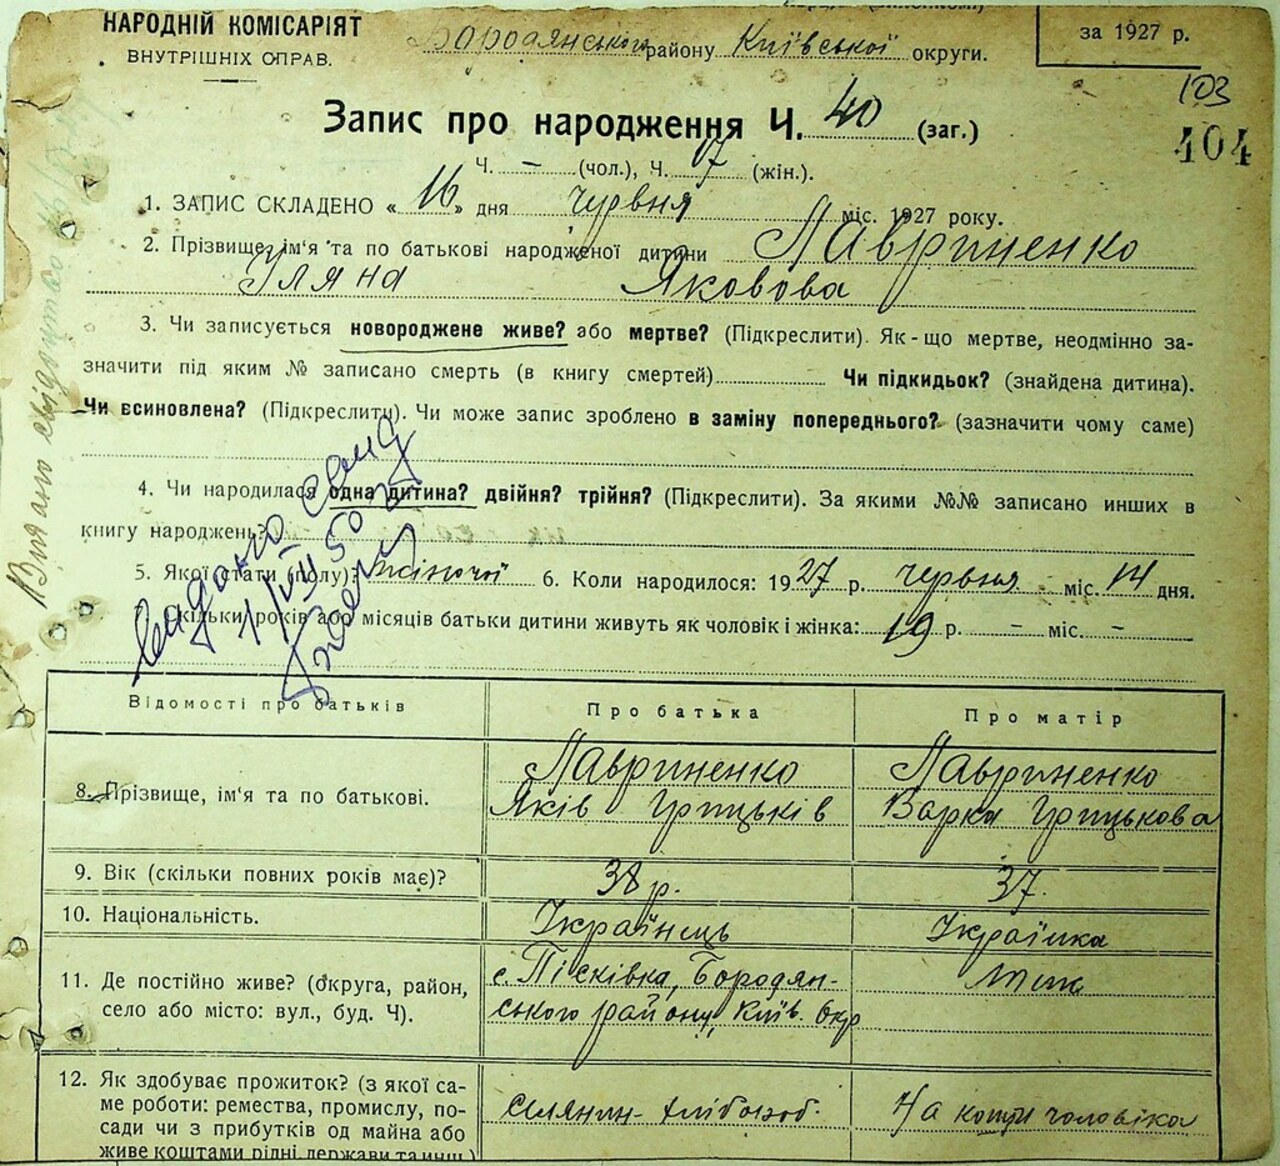 НАРОДНІЙ КОМІСАРІЯТ
ВНУТРІШНІХ СПРАВ.
Бородянського району Київської округи.
за 1927 р.
103
404
Запис про народження Ч. 40 (заг.)
Ч. – (чол.), Ч. 7 (жін.).
1. ЗАПИС СКЛАДЕНО « 16 » дня червня міс. 1927 року.
2. Прізвище, ім'я та по батькові народженої дитини Лавриненко
Уляна Яковова
3. Чи записується новороджене живе? або мертве? (Підкреслити). Як-що мертве, неодмінно за-
значити під яким № записано смерть (в книгу смертей) Чи підкидьок? (знайдена дитина).
Чи всиновлена? (Підкреслити). Чи може запис зроблено в заміну попереднього? (зазначити чому саме)
4. Чи народилася одна дитина? двійня? трійня? (Підкреслити). За якими №№ записано инших в
книгу народжень?
5. Якої стати (полу)? жіночої 6. Коли народилося: 1927 р. червня міс. 14 дня.
7. Скільки років або місяців батьки дитини живуть як чоловік і жінка: 19 р. – міс. –
Видано
1/VII 50
Відомості про батьків Про батька Про матір
8. Прізвище, ім'я та по батькові. Лавриненко Лавриненко
Яків Грицьків Варка Грицькова
9. Вік (скільки повних років має)? 38 р. 37.
10. Національність. Українець Українка
11. Де постійно живе? (округа, район, с. Пісківка, Бородян-
село або місто: вул., буд. Ч). ського району, Київ. Окр
12. Як здобуває прожиток? (з якої са-
ме роботи: ремества, промислу, по- селянин-хлібороб. На кошти чоловіка
сади чи з прибутків од майна або
живе коштами рідні, держави та инш.)